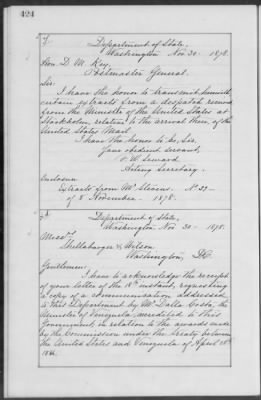 424
Department of State,
Washington Nov 30. 1878.
Hon D. M. Key,
Postmaster General.
Sir:
I have the honor to transmit herewith
certain extracts from a despatch received
from the Minister of the United States at
Stockholm, relative to the arrival then, of the
United States Mail.
I have the honor to be, Sir,
Your obedient servant,
F. W. Seward
Acting Secretary.
Enclosure
Extracts from Mr Stevens. No 32
of 8 November. 1878.
Department of State,
Washington Nov 30 1878.
Messrs
Shellabarger & Wilson
Washington, D.C.
Gentlemen:
I have to acknowledge the receipt
of your letter of the 18th instant, requesting
a copy of a communication addressed
to this Department by Mr. Dalla Costa, the
Minister of Venezuela, accredited to this
Government, in relation to the awards made
by the Commission under the Treaty between
the United States and Venezuela of April 25th
1866.